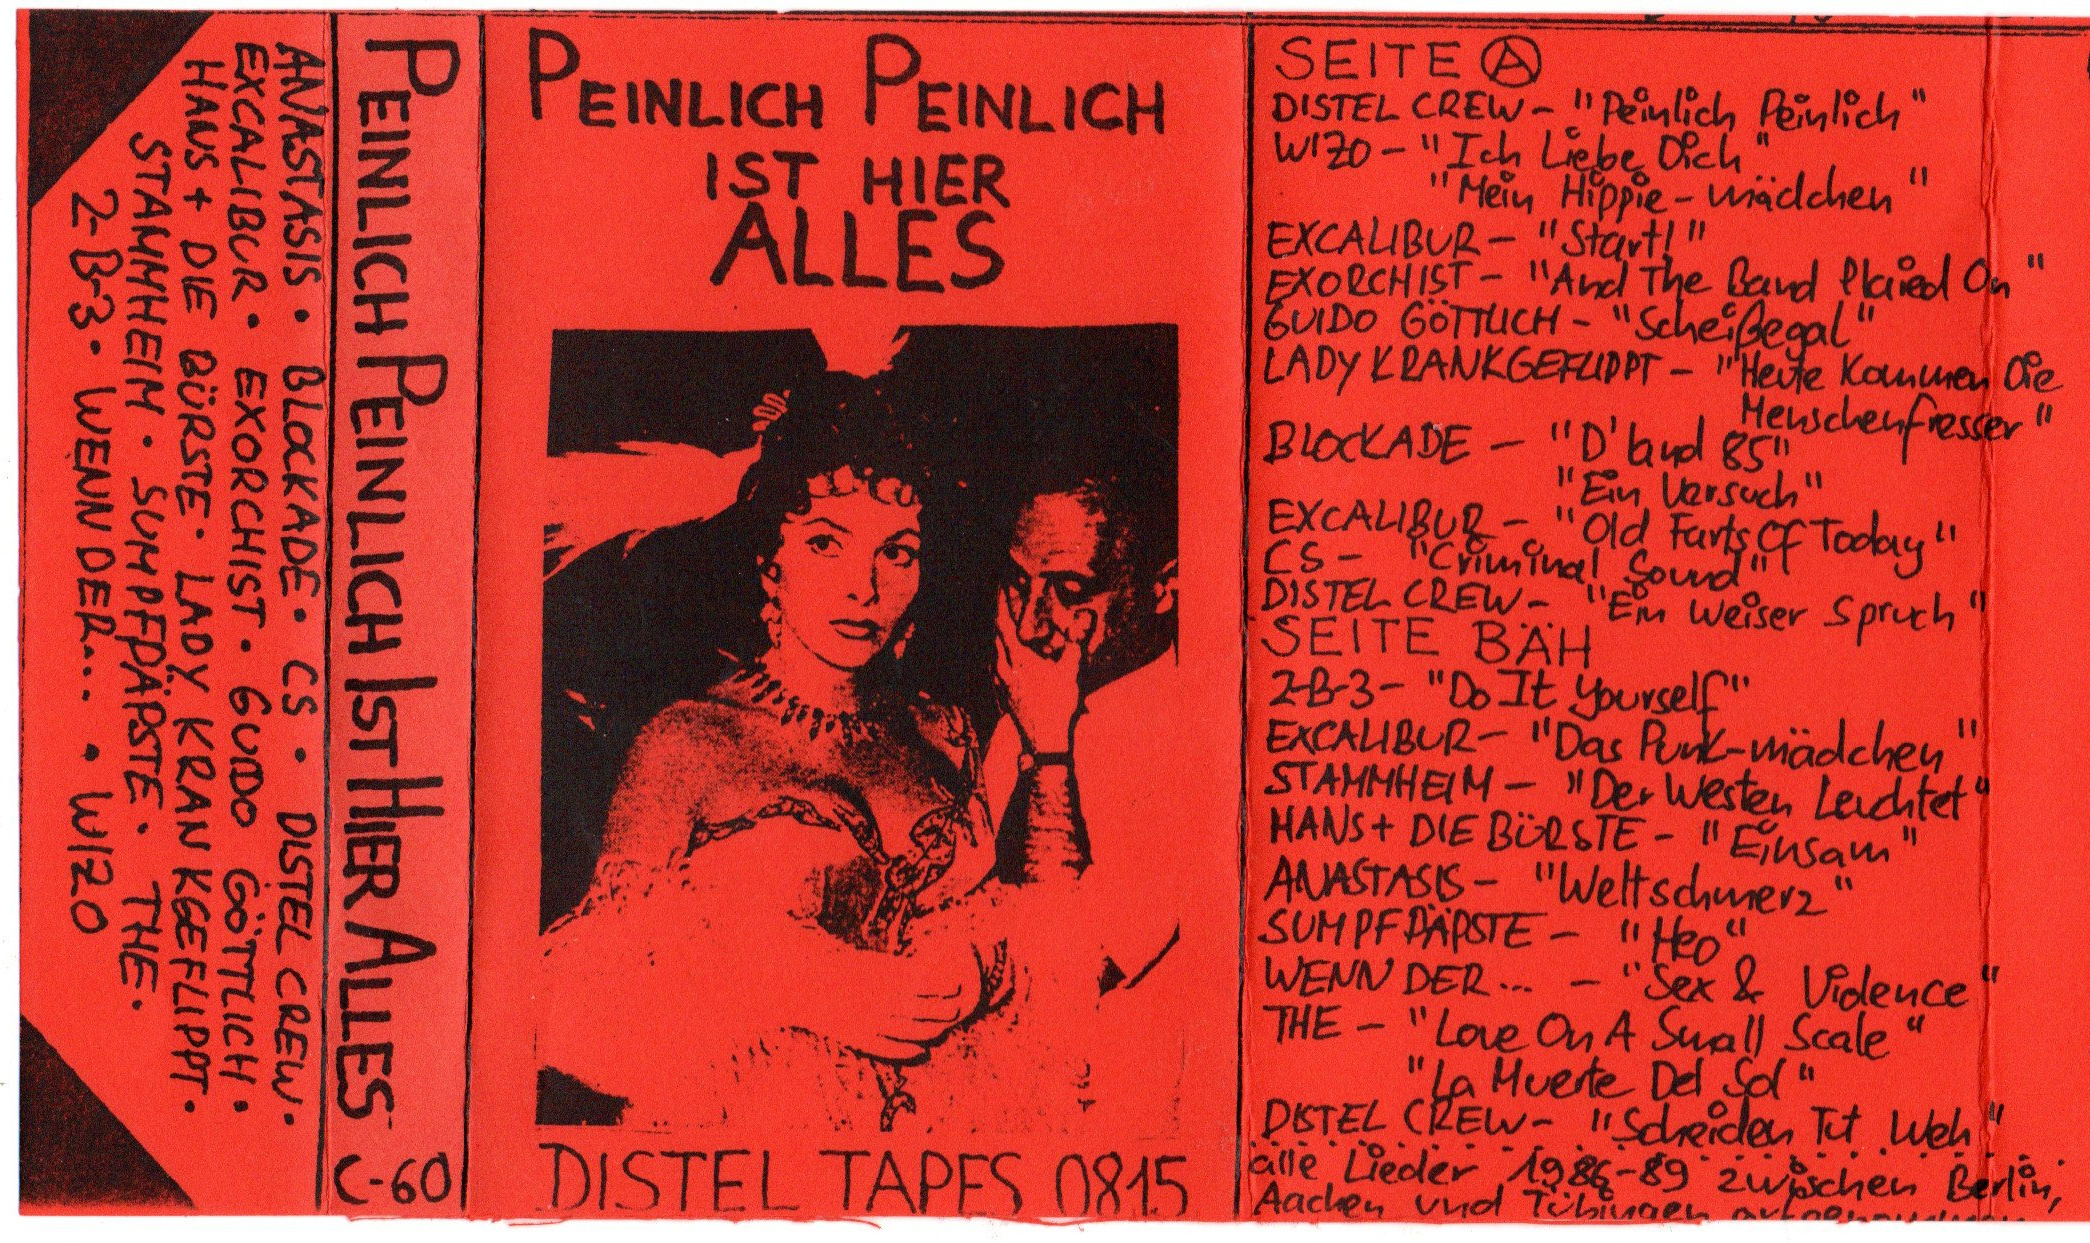 ANASTASIS · BLOCKADE · CS · DISTEL CREW ·
EXCALIBUR · EXORCHIST · GUIDO GÖTTLICH ·
HANS + DIE BÜRSTE · LADY KRANKGEFLIPPT ·
STAMMHEIM · SUMPFPÄPSTE · THE ·
2-B-3 · WENN DER... · WIZO
PEINLICH PEINLICH IST HIER ALLES
C-60
PEINLICH PEINLICH
IST HIER
ALLES
DISTEL TAPES 0815
SEITE Ⓐ
DISTEL CREW – "Peinlich Peinlich"
WIZO – "Ich Liebe Dich"
"Mein Hippie-mädchen"
EXCALIBUR – "Start!"
EXORCHIST – "And The Band Plaied On"
GUIDO GÖTTLICH – "Scheißegal"
LADY KRANKGEFLIPPT – "Heute Kommen Die
Menschenfresser"
BLOCKADE – "D'land 85"
"Ein Versuch"
EXCALIBUR – "Old Farts Of Today"
CS – "Criminal Sound"
DISTEL CREW – "Ein Weiser Spruch"
SEITE BÄH
2-B-3 – "Do It Yourself"
EXCALIBUR – "Das Punk-mädchen"
STAMMHEIM – "Der Westen Leuchtet"
HANS + DIE BÜRSTE – "Einsam"
ANASTASIS – "Weltschmerz"
SUMPFPÄPSTE – "Heo"
WENN DER... – "Sex & Violence"
THE – "Love On A Small Scale"
"La Muerte Del Sol"
DISTEL CREW – "Scheiden Tut Weh"
alle Lieder 1986-89 zwischen Berlin,
Aachen und Tübingen aufgenommen